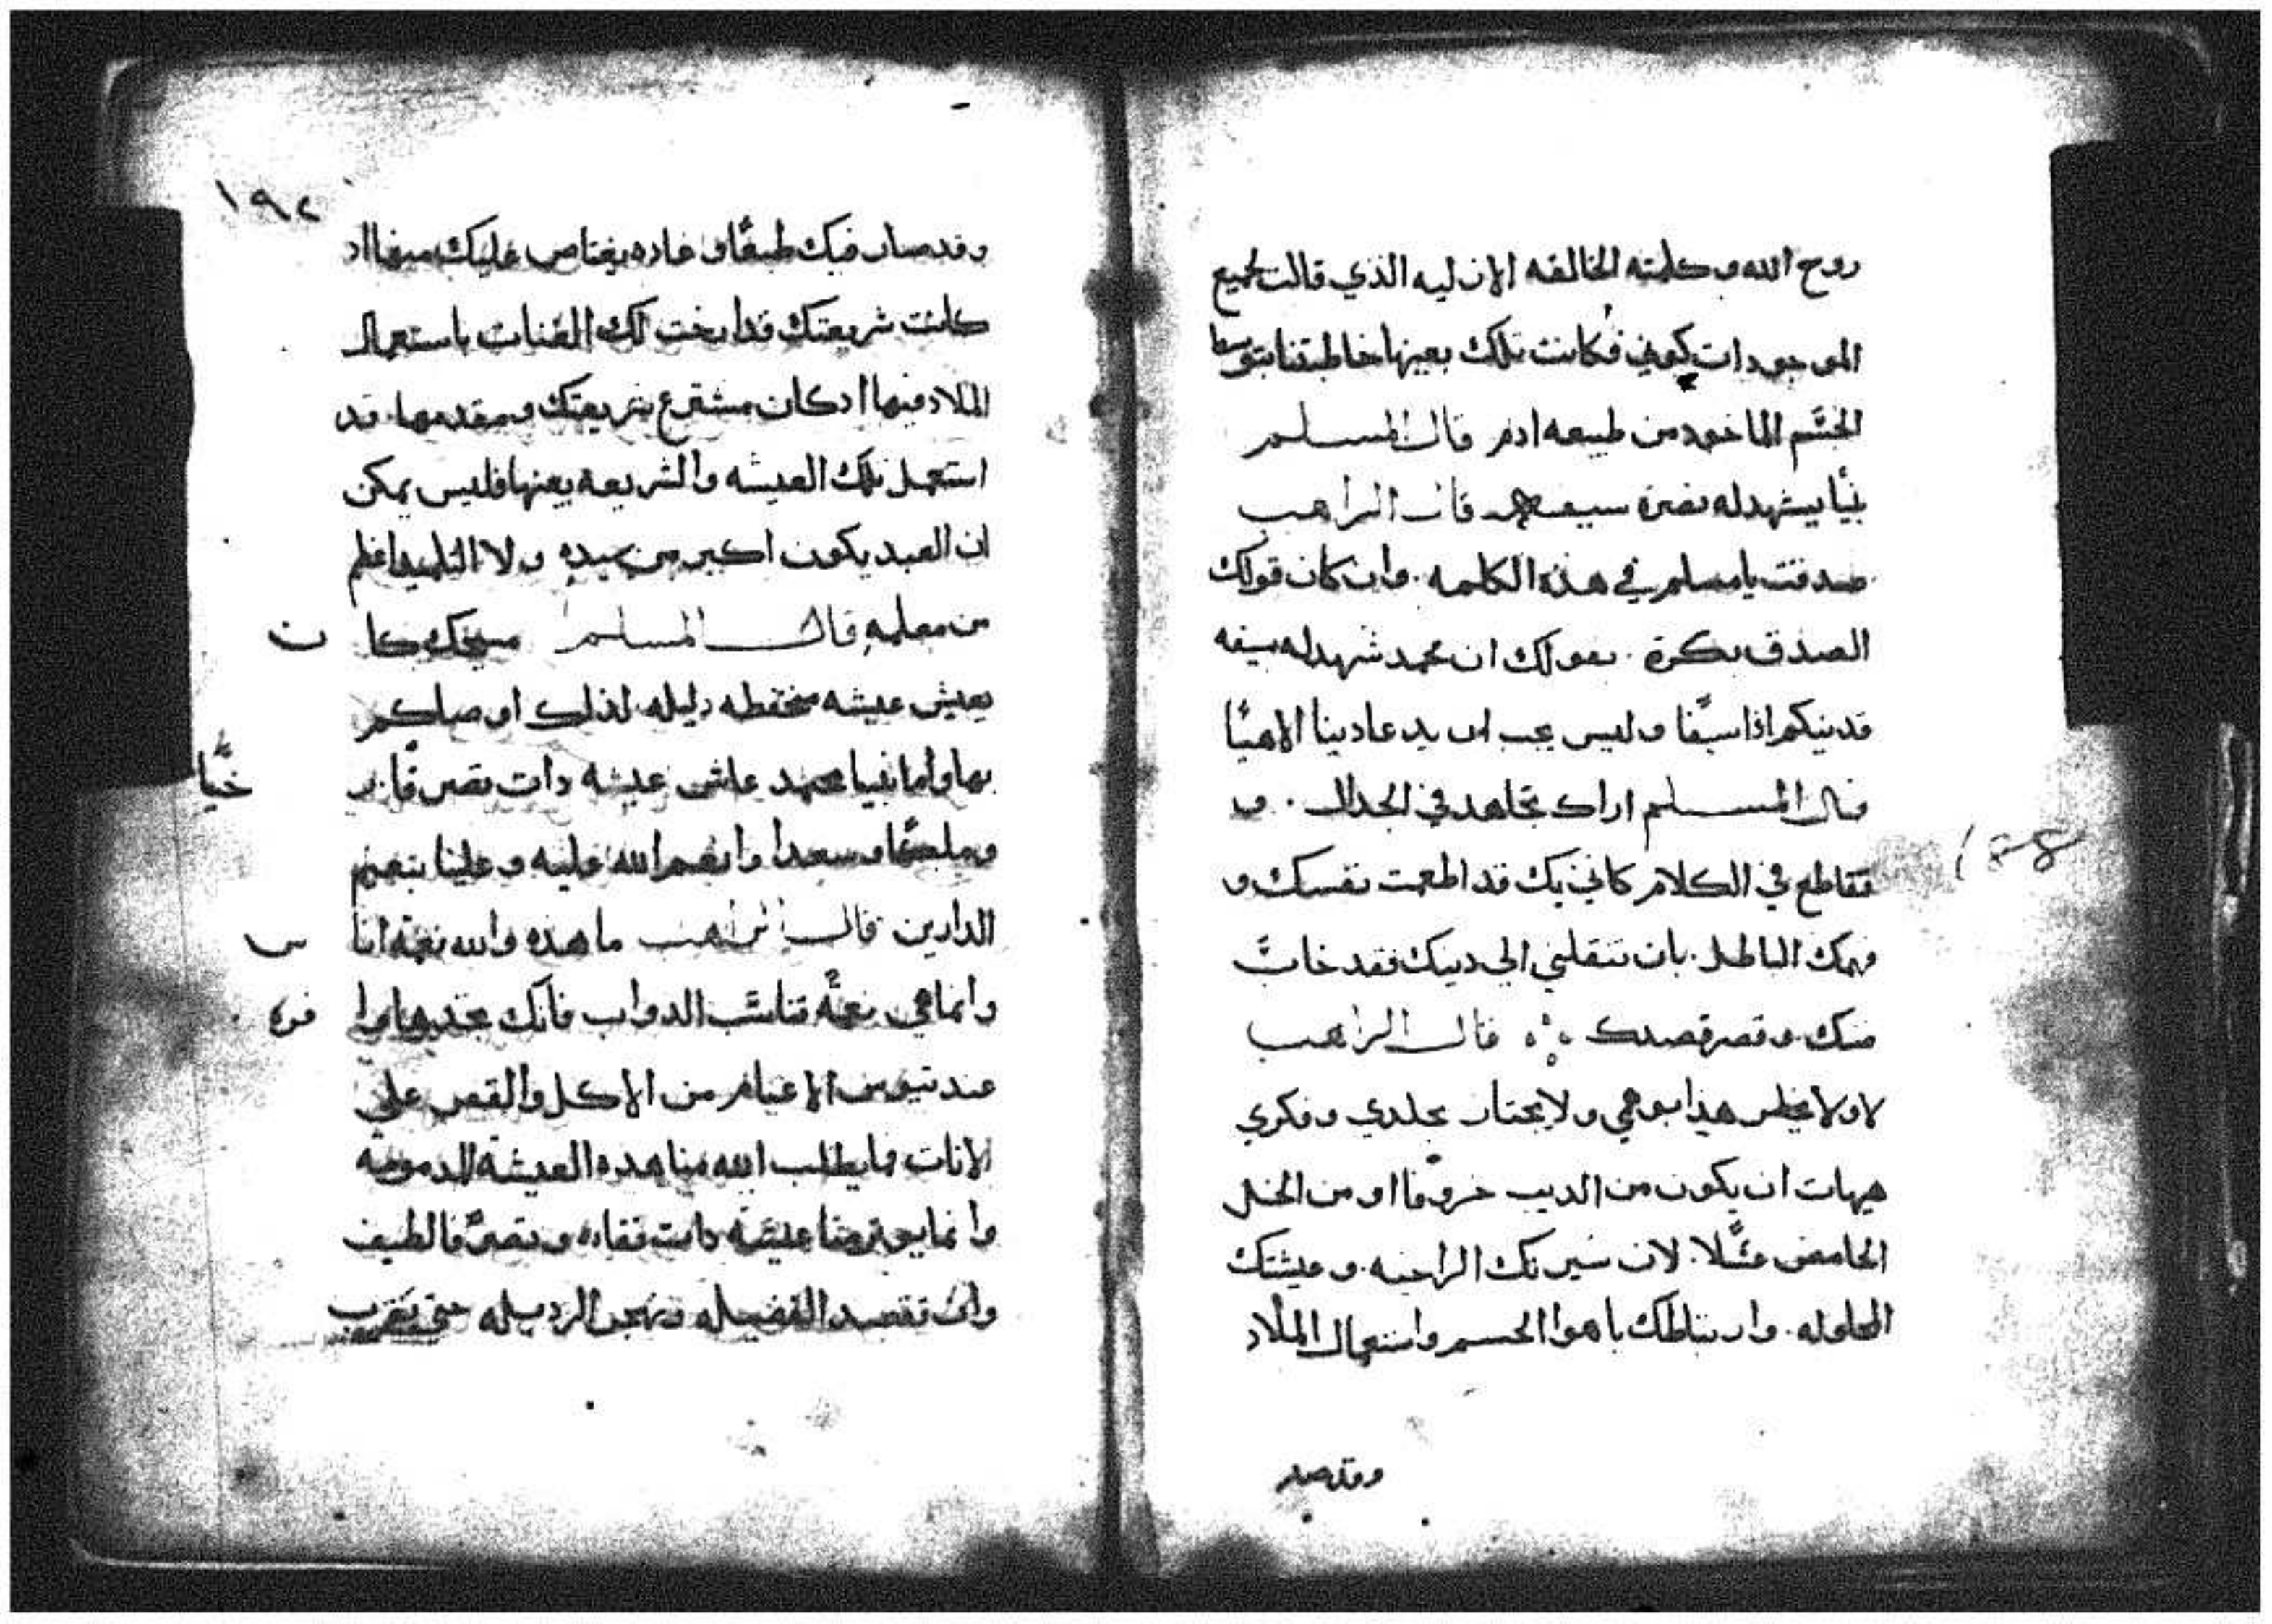 روح الله وكلمته الخالقه الازليه الذي قالت لجميع
الموجودات كوني فكانت تلك بعينها خاطبتنا بتوسط
الجسم الماخود من طبيعه ادم قال المسلم
نبيا يشهد له نصرة سيفه قال الراهب
صدقت يا مسلم في هذه الكلمه. وان كان قولك
الصدق بكرة. بقولك ان محمد شهد له سيفه
فدينكم اذا سيفا وليس يجب ان يدعا دينا الاهيا
قال المسلم اراك تجاهد في الجدال. و
تقاطع في الكلام كاني بك قد اطمعت نفسك و
فهمك الباطل. بان تنقلني الي دينك فقد خاب
منك وقصر قصدك قال الراهب
لا ولا يخطر هذا بوهمي ولا يجتاز بخلدي وفكري
هيهات ان يكون من الديب خروفا او من الخل
الحامض عسلا. لان سيرتك الراخيه. وعيشتك
المحلوله. وارتباطك باهوا الجسم واستعمال الملاد
وقد صار
١٩٢
وقد صار فيك طبعا وعاده يعتاص عليك منها اد
كانت شريعتك قد ابحت لك العنات باستعمال
الملاد فيها اد كان مشترع شريعتك ومقدمها. قد
استعمل تلك العيشه والشريعه بعينها فليس يمكن
ان العبد يكون اكبر من سيده ولا التلميد اعلم
من معلمه قال المسلم مسيحك كان
يعيش عيشه دليله لذلك اوصاكم
بها واما نبيا محمد عاش عيشه دات تصرف
وسعدا وانعم الله عليه وعلينا بنعيم
الدارين قال الراهب ما هذه والله نعمه
وانما هي نعمه تناسب الدواب فانك تجدها
عند تيوس الاغنام من الاكل والقفص علي
الانات فما يطلب الله منا هده العيشه المدمومه
وانما عيشه دات نقاوه وتصرفا لطيف
وان نقصد الفضيله ونهجر الرديله حتي نقرب